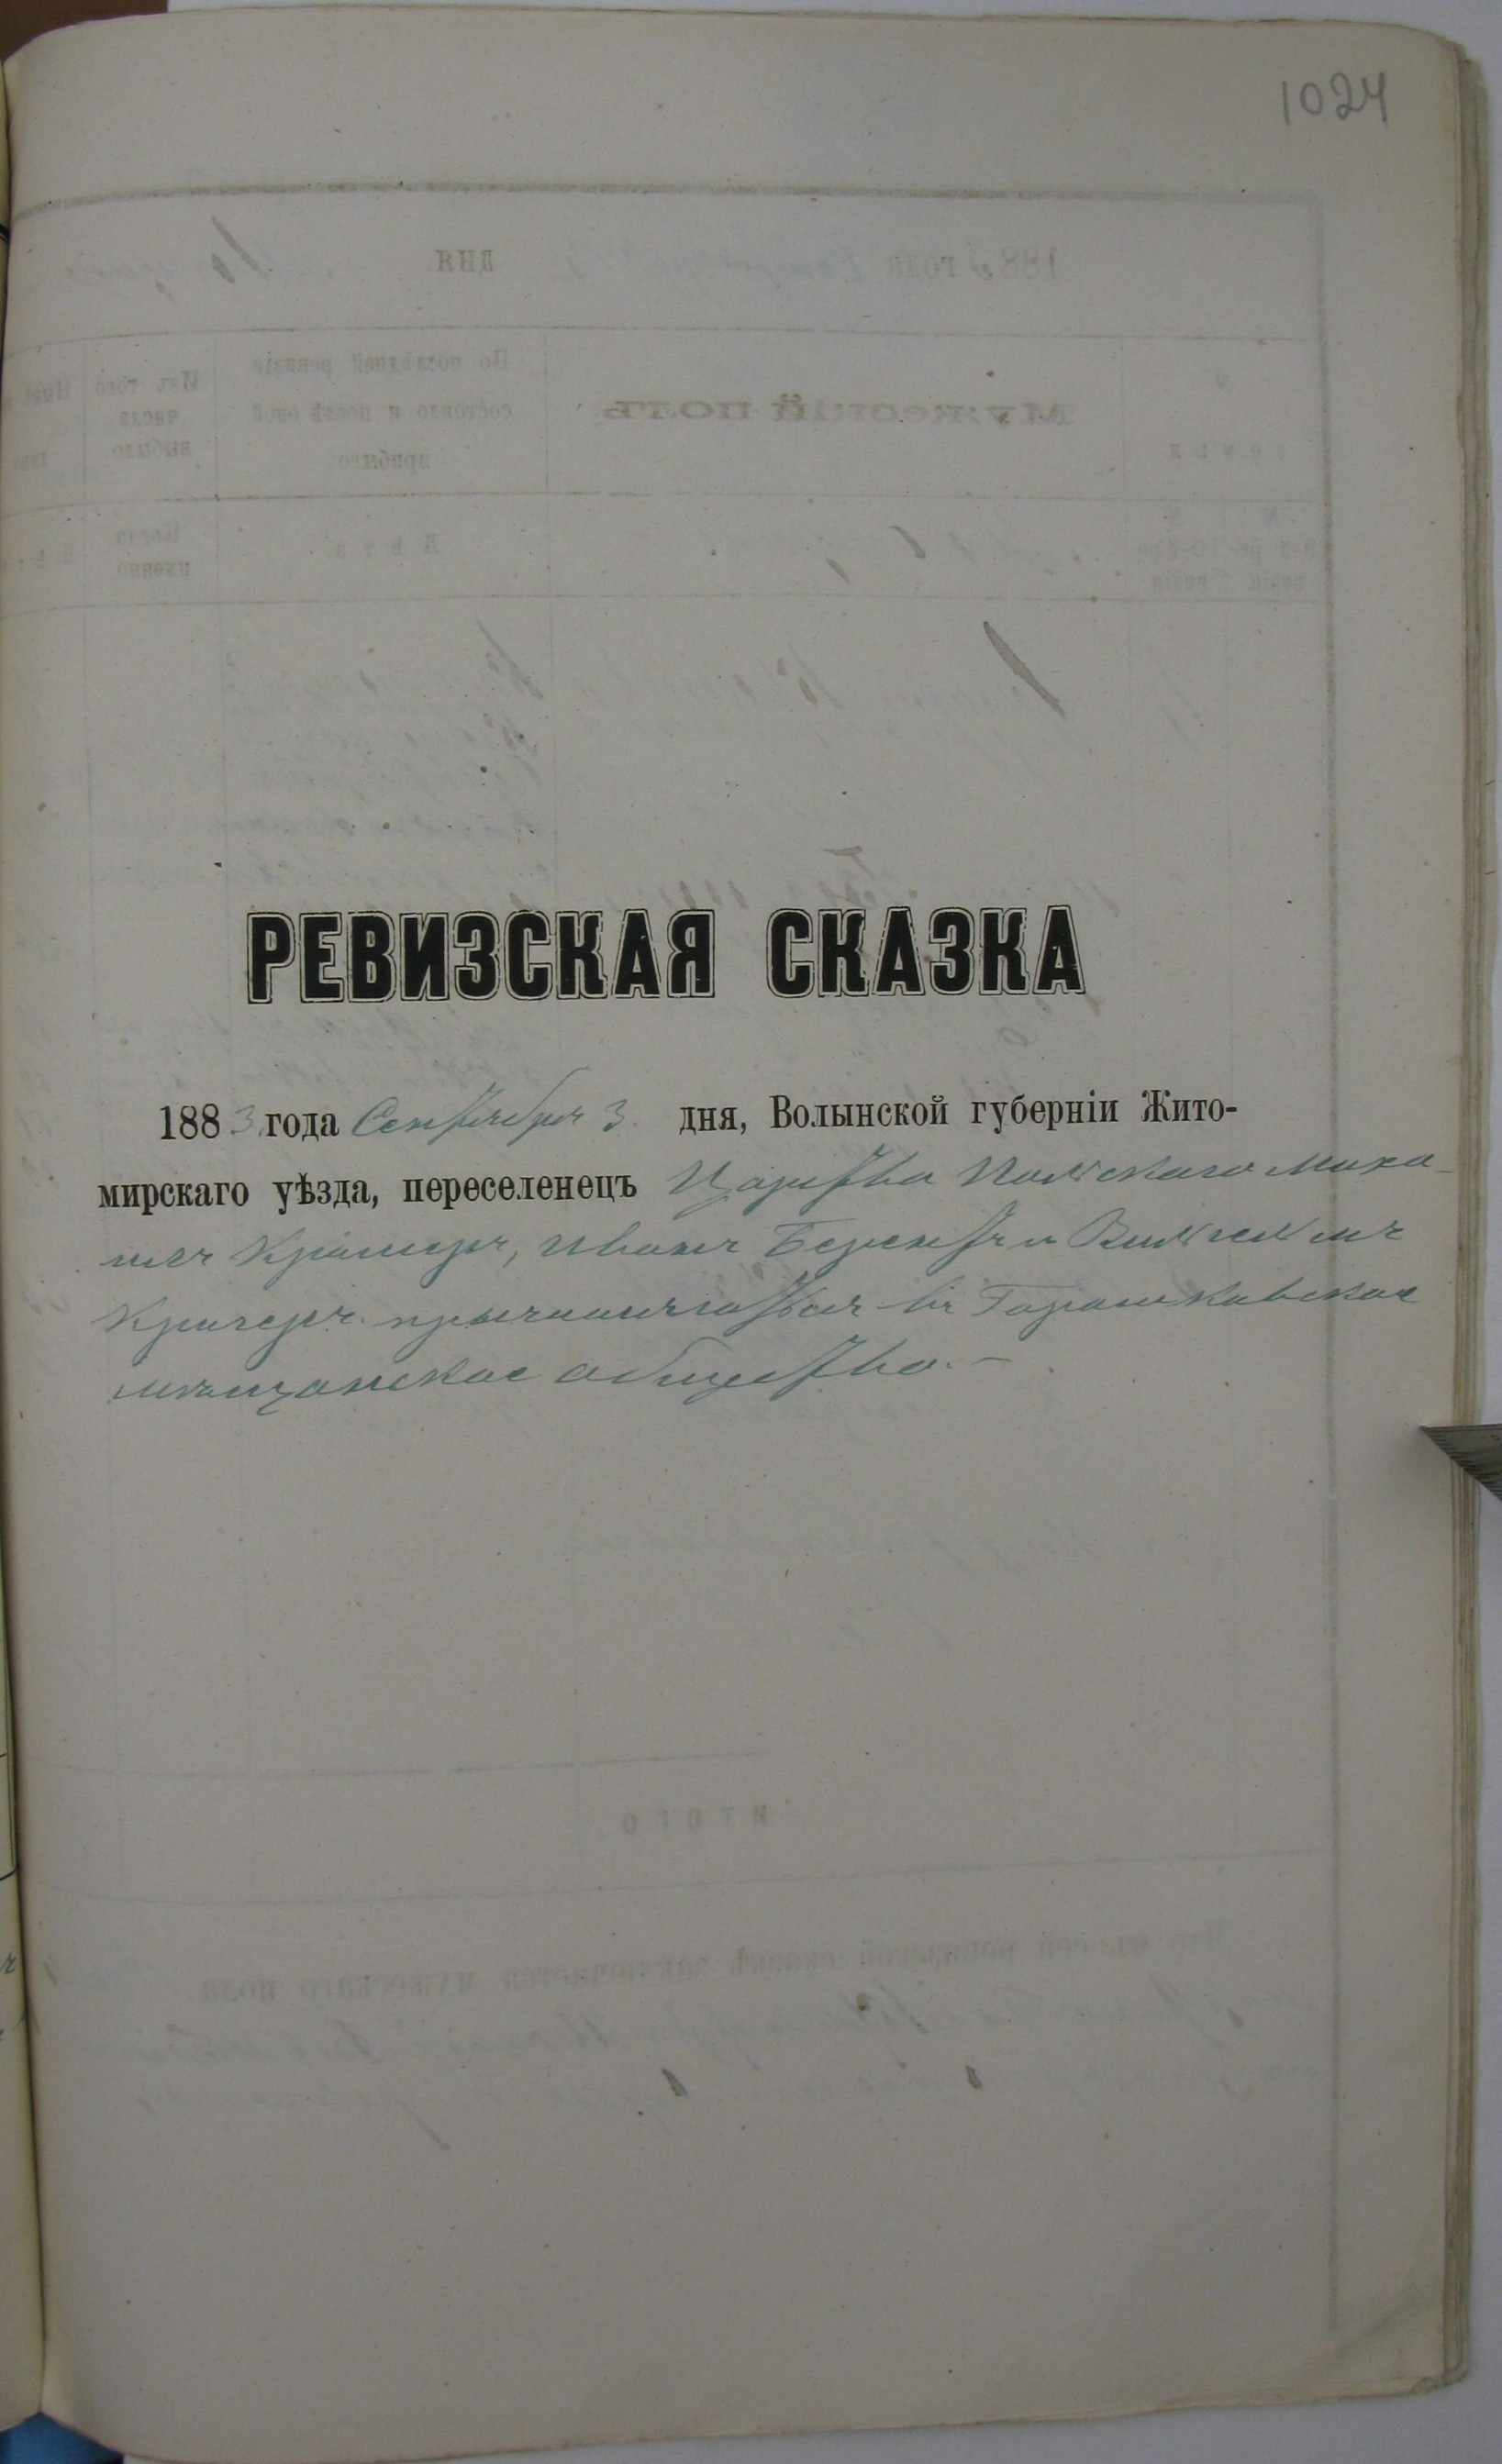 1024
РЕВИЗСКАЯ СКАЗКА
1883 года Сентября 3 дня, Волынской губерніи Жито-
мирскаго уѣзда, переселенецъ Царства Польскаго Миха-
илъ Крамеръ, Иванъ Берентъ и Вильгельмъ
Кригеръ въ Горошковское
мѣщанское общество.-